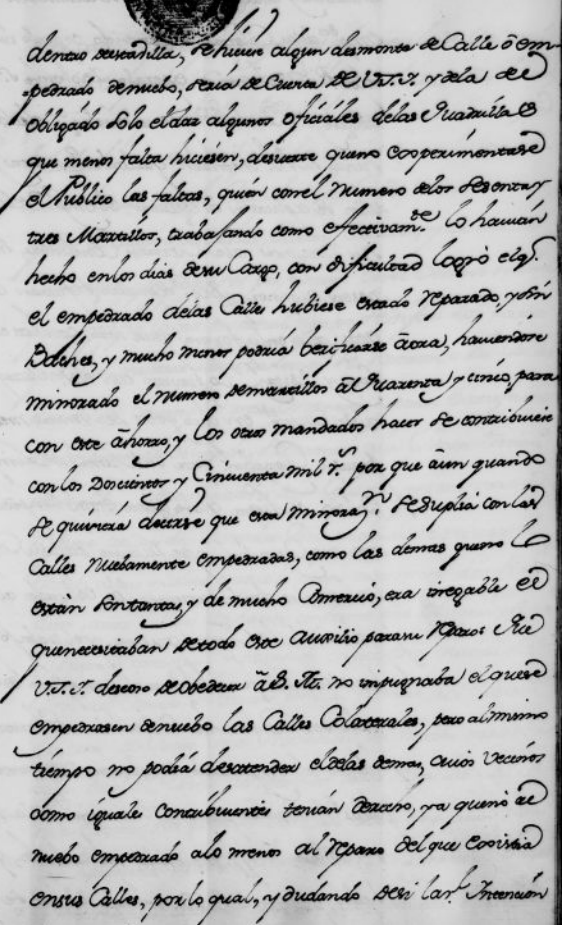 dentro de esta dilla, se hiciere algun desmonte de Calle ô em-
pedrado de nuebo, seria de Cuenta de V.S.Y. y dela del
Obligado solo el dar algunos oficiales delas Quadrillas
que menos falta hiciesen, desuerte queno experimentase
el Publico las faltas, quien con el Numero delos sesenta y
tres Martillos, trabajando como efectivam.te lo havian
hecho enlos dias desu Cargo, con dificultad logrò elq.e
el empedrado delas Calles hubiese estado reparado, y sin
Baches, y mucho menos podria berificarse âora, haviendose
minorado el numero demartillos âl Quarenta y cinco, para
con este âhorro, y los otros mandados hacer se contribuiese
con los Doscientos y Cincuenta mil r.s por que âun quando
se quisiera decirse que esta minoraz.n se suplia con las
Calles nuebamente empedradas, como las demas queno lo
están son tantas, y de mucho Comercio, era inegable el
quenecesitaban detodo este auxilio parasu reparo: Que
V.S.Y. deseoso de obedecer â S. M. no impugnaba el quese
empedrasen denuebo las Calles Colaterales, pero almismo
tiempo no podia desatender eldelas demas, cuios vecinos
como iguales Contribuientes tenian derecho, ya queno âl
nuebo empedrado alo menos al reparo del que existia
ensus Calles, por lo qual, y dudando desi la r.l Intención